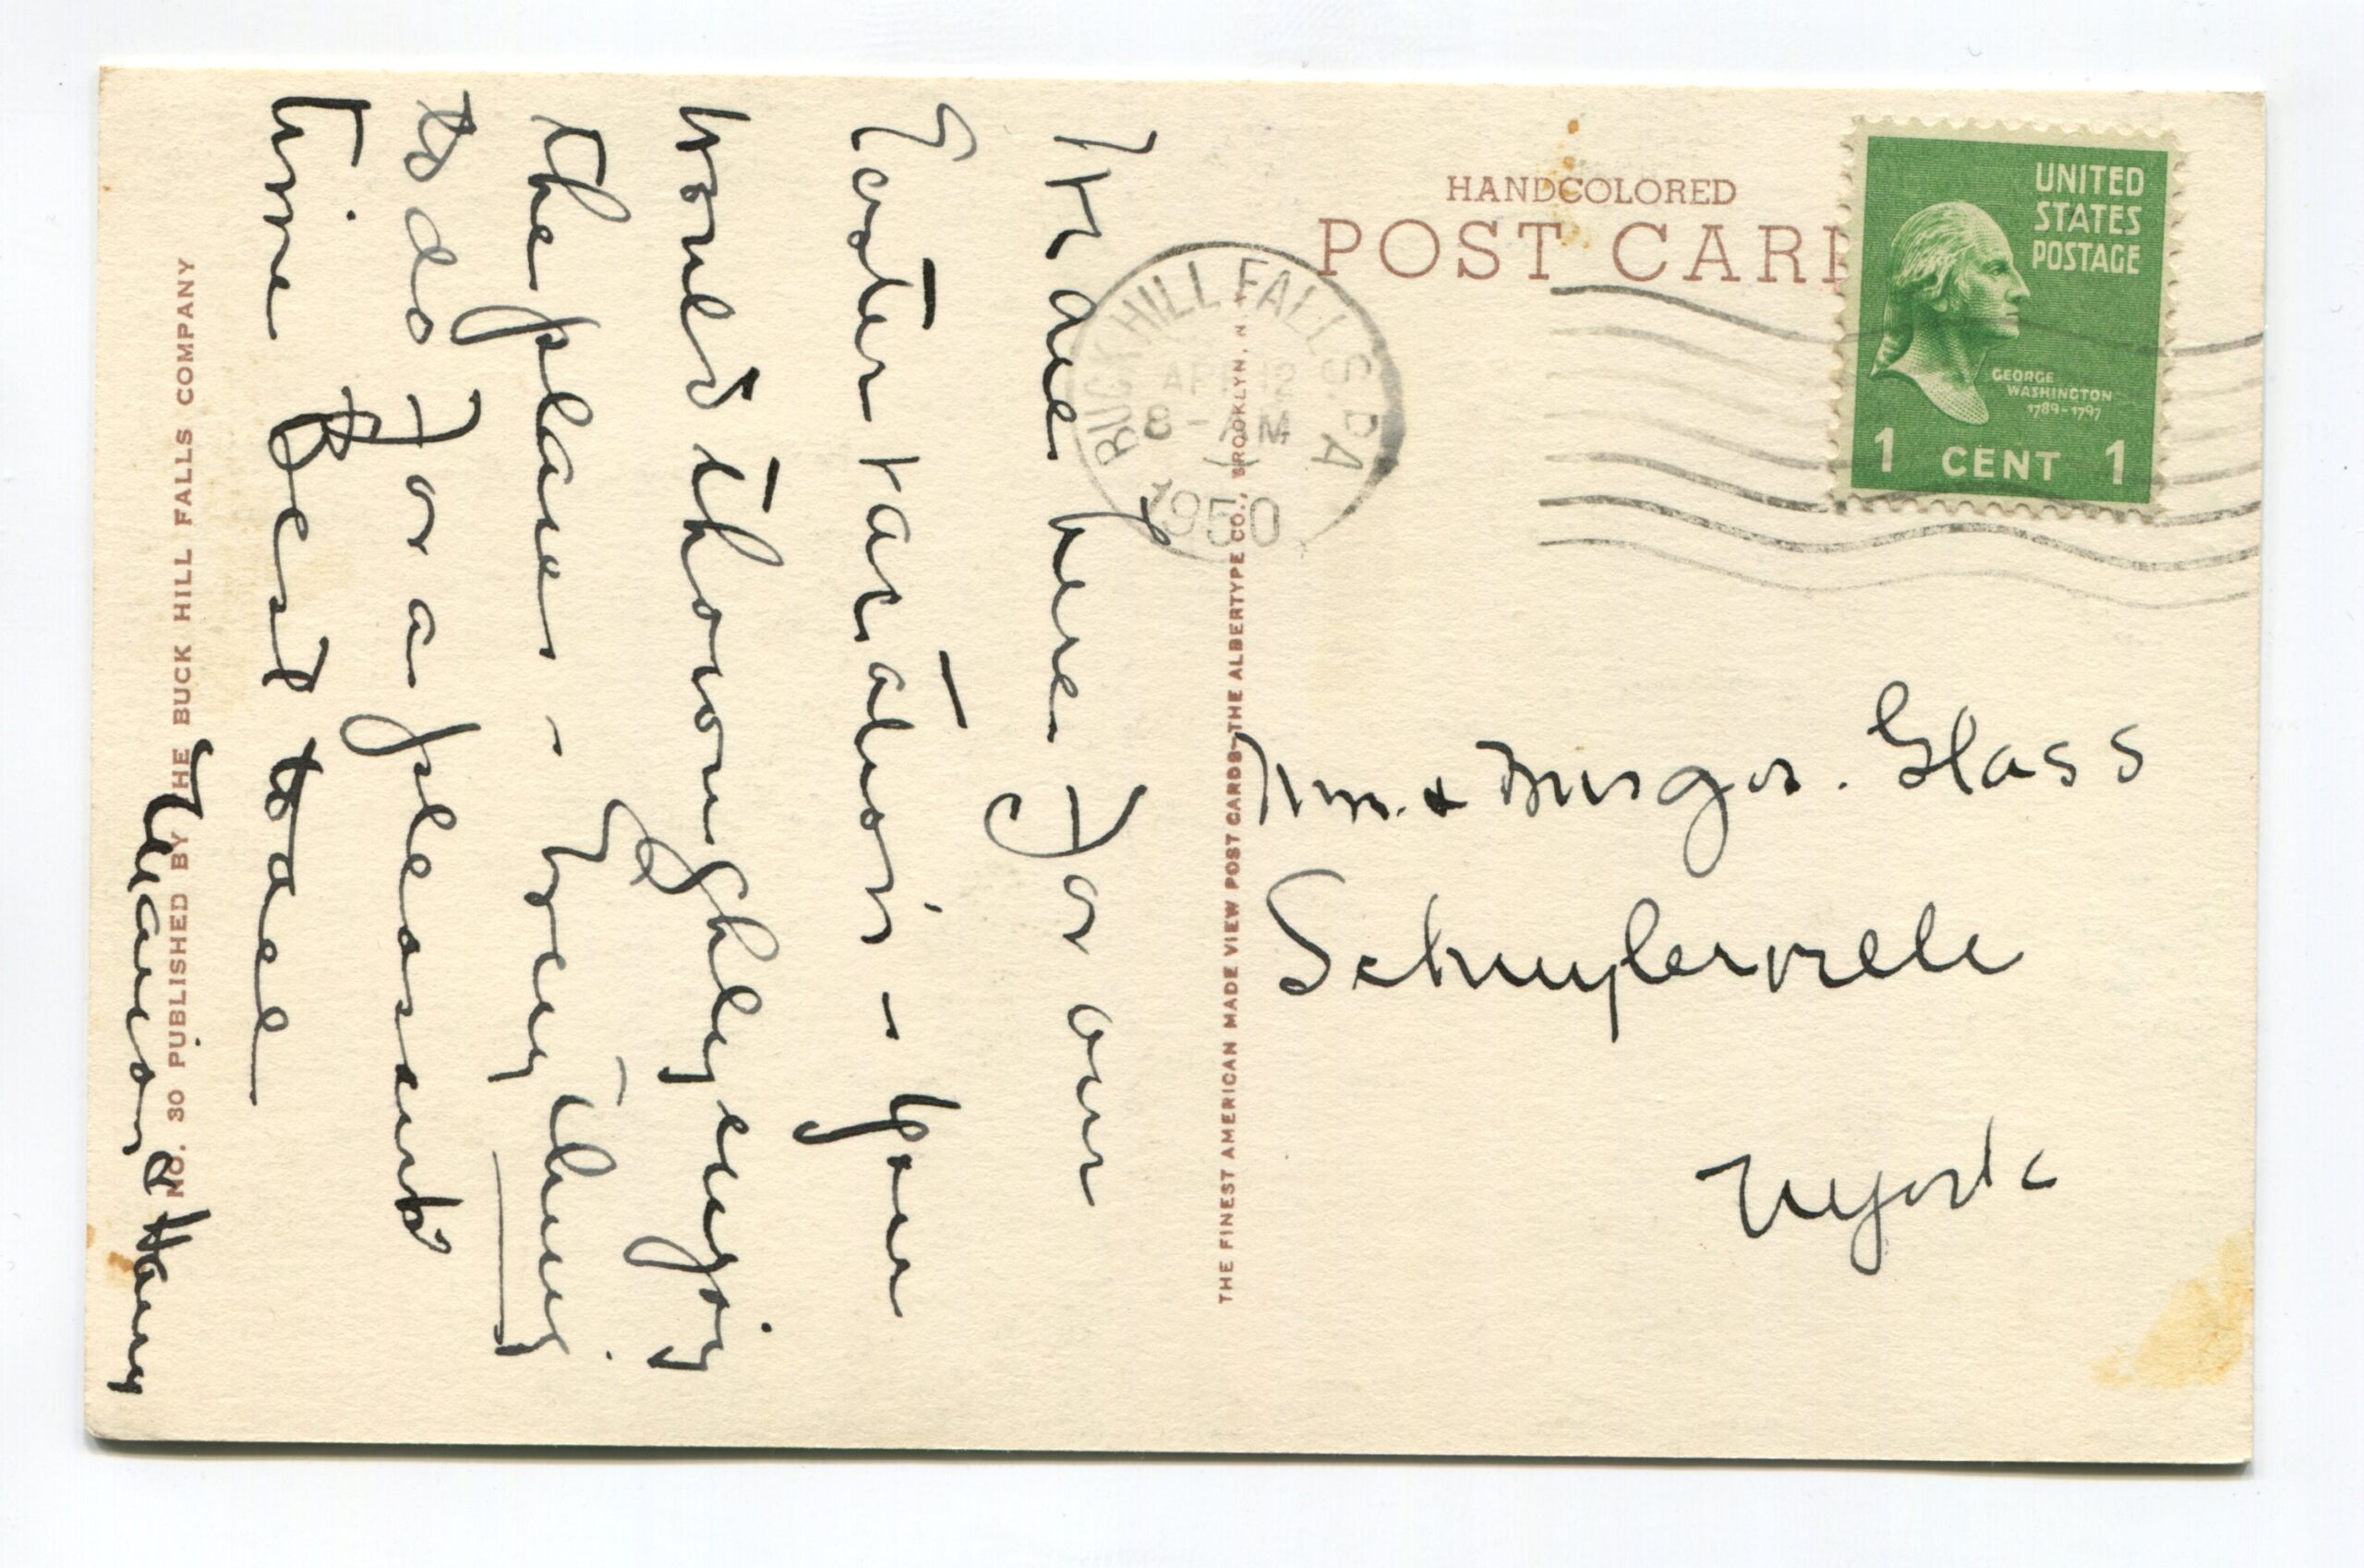 HANDCOLORED
POST CARD
UNITED
STATES
POSTAGE
GEORGE
WASHINGTON
1789-1797
1 CENT 1
BUCK HILL FALLS. PA
APR 12
8 - AM
1950
here for our
Easter vacation - You
would thoroughly enjoy
the place - Everything
to do for a pleasant
time Best to all
Marion & Harry
Mr. & Mrs Geo. Glass
Schuylerville
N York
THE FINEST AMERICAN MADE VIEW POST CARDS—THE ALBERTYPE CO., BROOKLYN, N
NO. 30 PUBLISHED BY THE BUCK HILL FALLS COMPANY